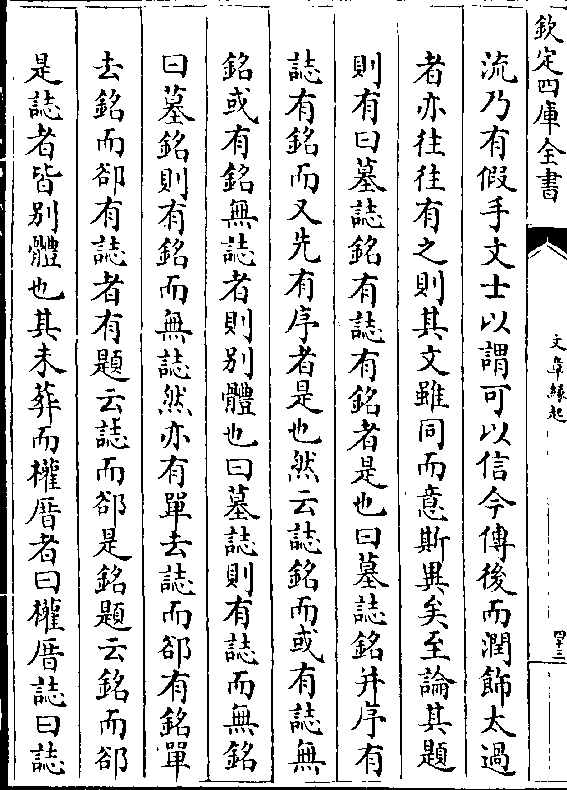 欽定四庫全書
文章縁起
四十三
流乃有假手文士以謂可以信今傳後而潤飾太過
者亦往往有之則其文雖同而意斯異矣至論其題
則有曰墓誌銘有誌有銘者是也曰墓誌銘并序有
誌有銘而又先有序者是也然云誌銘而或有誌無
銘或有銘無誌者則别體也曰墓誌則有誌而無銘
曰墓銘則有銘而無誌然亦有單去誌而郤有銘單
去銘而郤有誌者有題云誌而郤是銘題云銘而郤
是誌者皆别體也其未葬而權厝者曰權厝誌曰誌